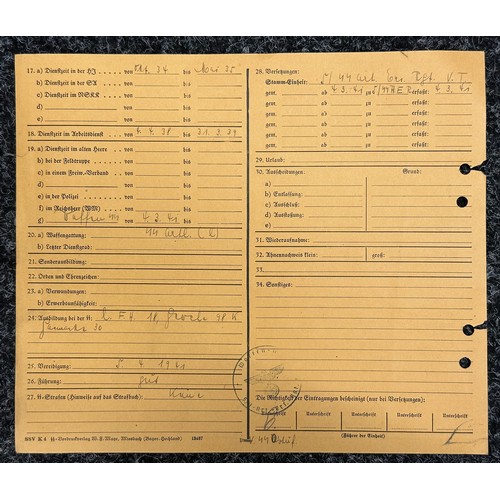 17. a) Dienstzeit in der HJ von Okt. 34 bis Mai 35
b) Dienstzeit in der SA von bis
c) Dienstzeit im NSKK von bis
d) von bis
e) von bis
18. Dienstzeit im Arbeitsdienst von 4. 4. 38 bis 31. 3. 39
19. a) Dienstzeit im alten Heere von bis
b) bei der Feldtruppe von bis
c) in einem Freiw.-Verband von bis
d) von bis
e) in der Polizei von bis
f) im Reichsheer (WM) von bis
g) Waffen ᛋᛋ von 4. 3. 41. bis
20. a) Waffengattung: ᛋᛋ Artl.
b) Letzter Dienstgrad:
21. Sonderausbildung:
22. Orden und Ehrenzeichen:
23. a) Verwundungen:
b) Erwerbsunfähigkeit:
24. Ausbildung bei der ᛋᛋ: l. F. H. 18,
25. Vereidigung: 5. 4 1941
26. Führung: gut
27. ᛋᛋ-Strafen (Hinweise auf das Strafbuch): Keine
ᛋᛋ-Vordruckverlag W. F. Mayr, Miesbach (Bayer. Hochland)
28. Versetzungen:
Stamm-Einheit: 5/ ᛋᛋ Art. Ers. Rgt. V. T
gem. ab 4. 3. 41 zu erfaßt: 4. 3. 41.
gem. ab zu erfaßt:
gem. ab zu erfaßt:
gem. ab zu erfaßt:
gem. ab zu erfaßt:
29. Urlaub:
30. Ausscheidungen: Grund:
a)
b) Entlassung:
c) Ausschluß:
d) Ausstoßung:
e)
31. Wiederaufnahme:
32. Ahnennachweis klein: groß:
33.
34. Sonstiges:
Die Richtigkeit der Eintragungen bescheinigt (nur bei Versetzungen):
Unterschrift Unterschrift Unterschrift Unterschrift Unterschrift
(Führer der Einheit)